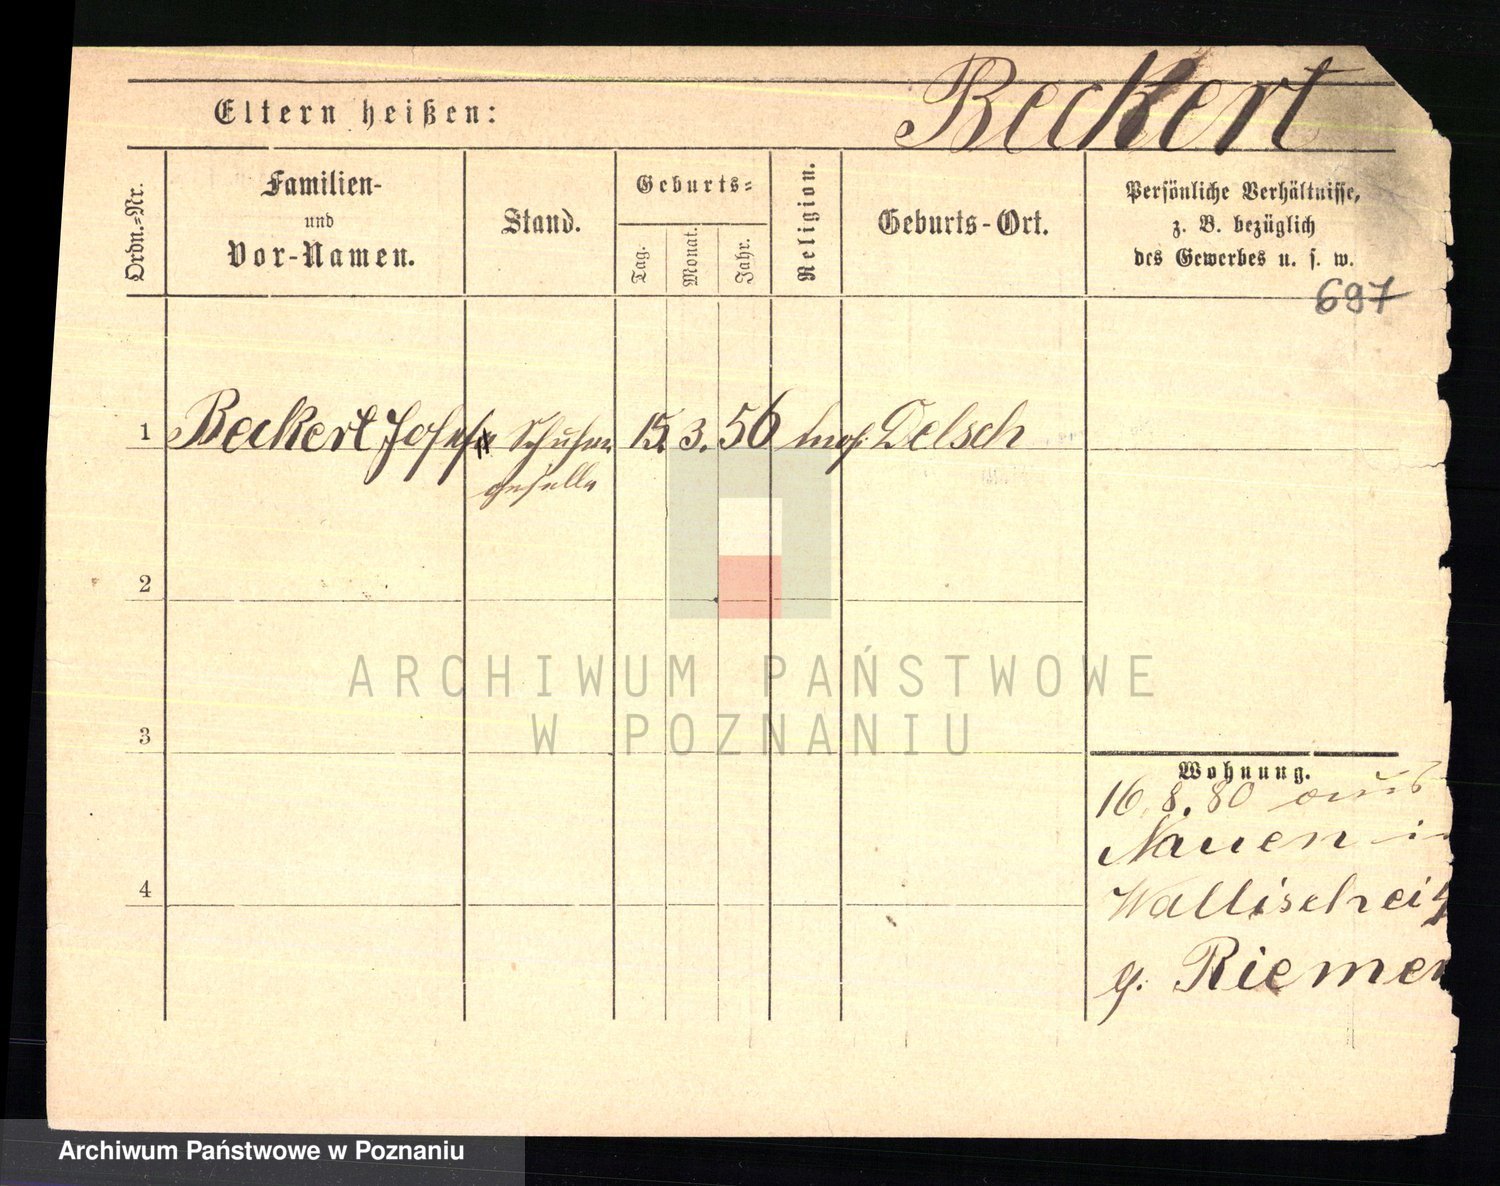 Beckert
Eltern heißen:
Ordn.=Nr.
Familien-
und
Vor-Namen.
Stand.
Geburts=
Tag.
Monat.
Jahr.
Religion.
Geburts-Ort.
Persönliche Verhältnisse,
z. B. bezüglich
des Gewerbes u. s. w.
697
1 Beckert Josef Schuhm. 15. 3. 56 Delsch
geselle
2
3
4
ARCHIWUM PAŃSTWOWE
W POZNANIU
Wohnung.
16.8.80 aus
Nauen
Wallischei
g. Riemer
Archiwum Państwowe w Poznaniu